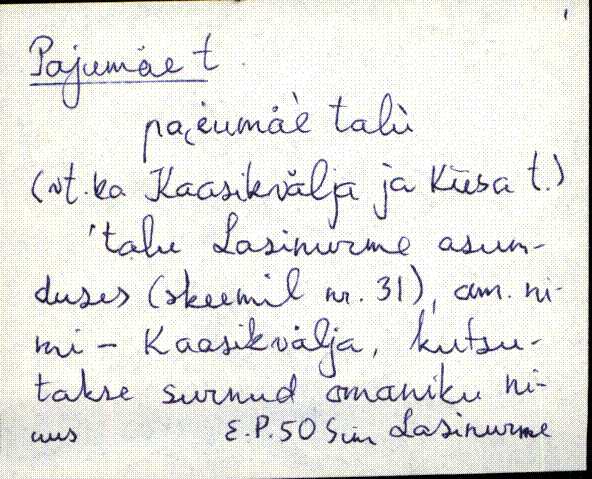 Pajumäe t.
pai̯umäè talù
(vt. ka Kaasikvälja ja Kiisa t.)
'talu Lasinurme asum-
duses (skeemil nr. 31), am. ni-
mi – Kaasikvälja, kutsu-
takse surnud omaniku ni-
mes E.P. 50 Sim Lasinurme